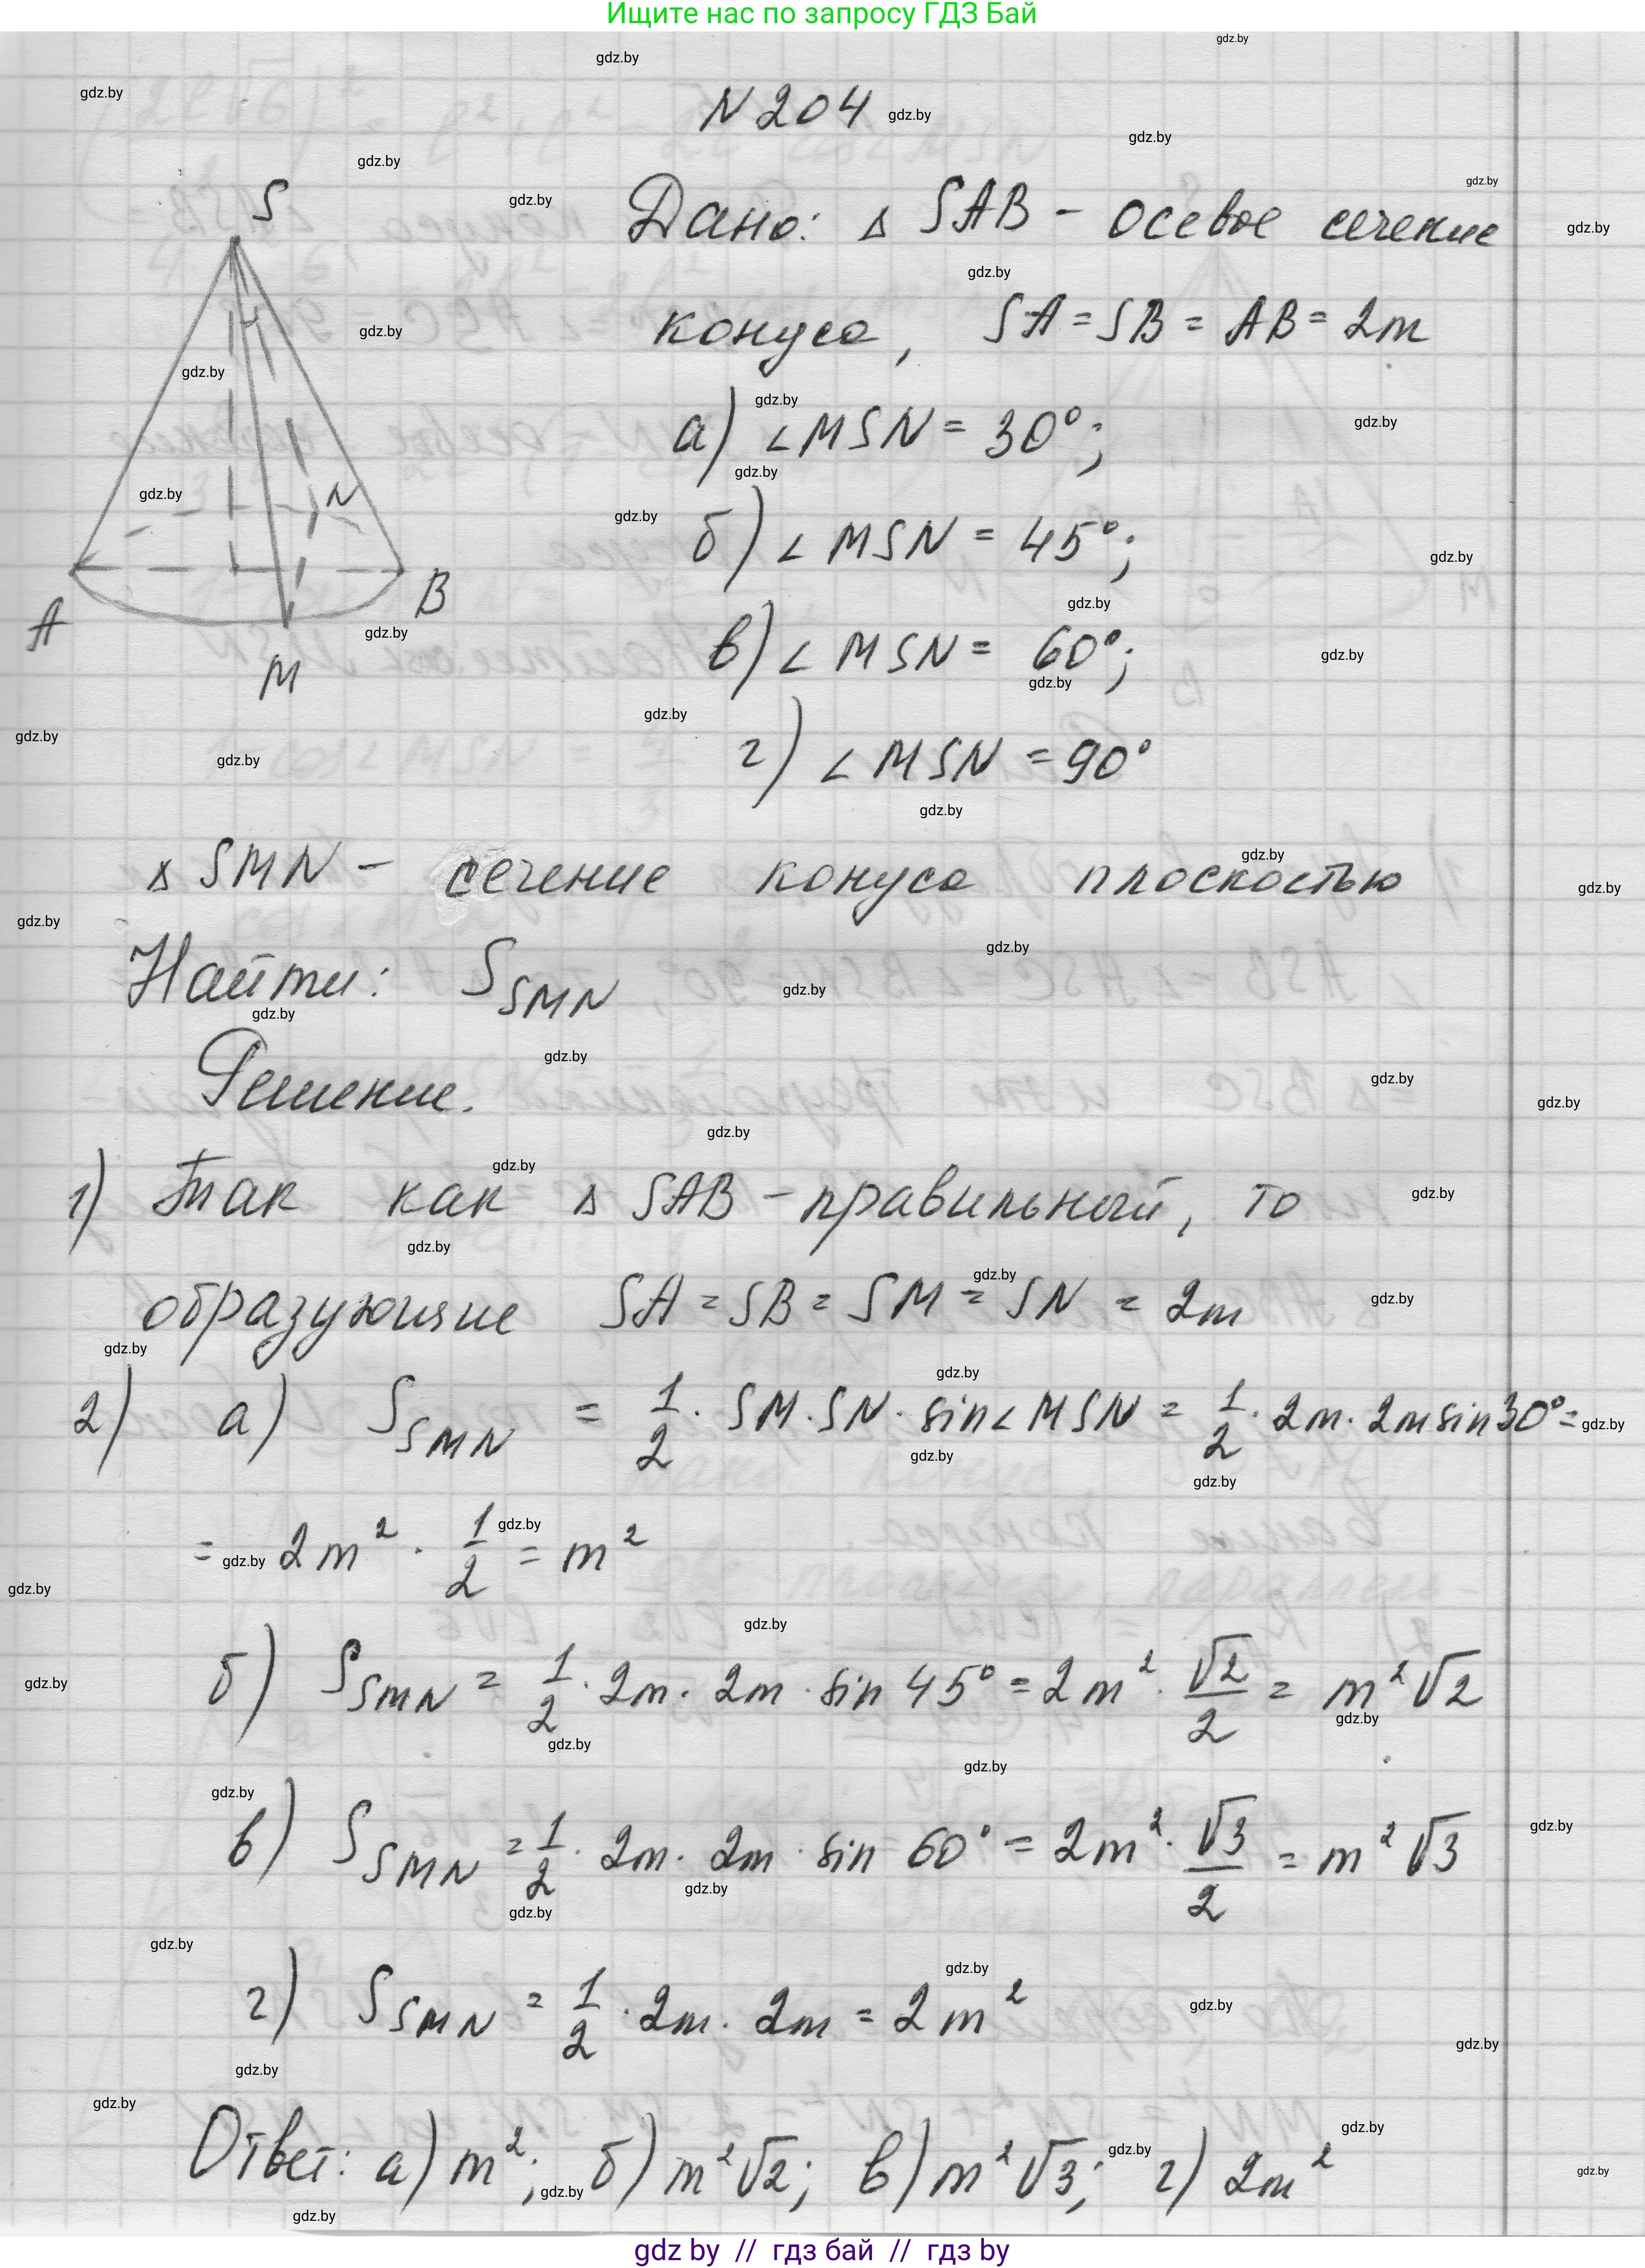 Ищите нас по запросу ГДЗ Бай
N 204
S
A
B
M
N
Дано: Δ SAB - осевое сечение
конуса, SA = SB = AB = 2m
а) ∠MSN = 30°;
б) ∠MSN = 45°;
в) ∠MSN = 60°;
г) ∠MSN = 90°
Δ SMN - сечение конуса плоскостью
Найти: S_SMN
Решение.
1) Так как Δ SAB - правильный, то
образующие SA = SB = SM = SN = 2m
2) а) S_SMN = 1/2 · SM · SN · sin∠MSN = 1/2 · 2m · 2m sin30° =
= 2m² · 1/2 = m²
б) S_SMN = 1/2 · 2m · 2m · sin 45° = 2m² · √2/2 = m²√2
в) S_SMN = 1/2 · 2m · 2m · sin 60° = 2m² · √3/2 = m²√3
г) S_SMN = 1/2 · 2m · 2m = 2m²
Ответ: а) m²; б) m²√2; в) m²√3; г) 2m²
gdz by // гдз бай // гдз by